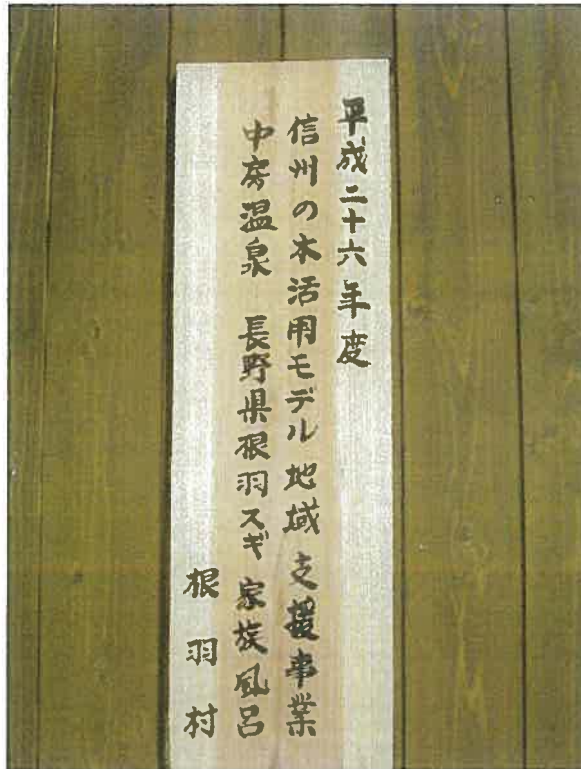 平成二十六年度
信州の木活用モデル地域支援事業
中房温泉 長野県根羽スギ家族風呂
根羽村